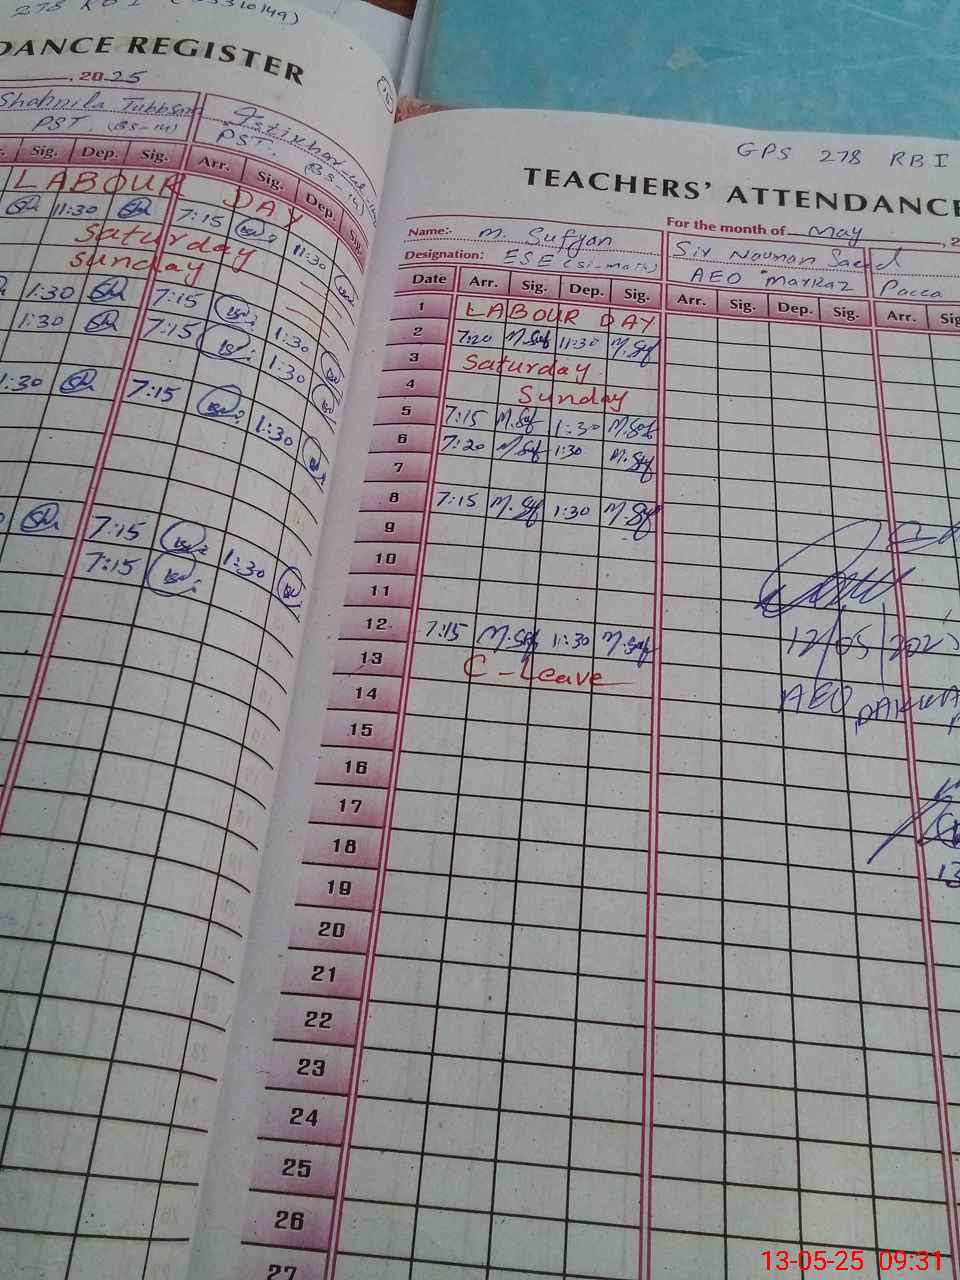 278 RBI
DANCE REGISTER
, 2025
Shahnila Tubbsam
PST. (BS-14)
PST. (BS-14)
Sig. Dep. Sig. Arr. Sig. Dep. Sig.
LABOUR DAY
11:30 7:15 11:30
Saturday
Sunday
1:30 7:15 1:30
1:30 7:15 1:30
1:30 7:15 1:30
7:15 1:30
7:15
GPS 278 RBI
TEACHERS' ATTENDANCE
For the month of May, 2
Name:- M. Sufyan
Sir Nouman Saeed
Designation: ESE (Sci-Math)
AEO Markaz Pacca
Date Arr. Sig. Dep. Sig. Arr. Sig. Dep. Sig. Arr. Sig
1 LABOUR DAY
2 7:20 M.Suf 11:30 M.Suf
3 Saturday
4 Sunday
5 7:15 M.Suf 1:30 M.Suf
6 7:20 M.Suf 1:30 M.Suf
7
8 7:15 M.Suf 1:30 M.Suf
9
10
11
12 7:15 M.Suf 1:30 M.Suf
12/05/202
13 C-Leave
14
AEO
15
16
17
18
19
20
21
22
23
24
25
26
27
13-05-25 09:31